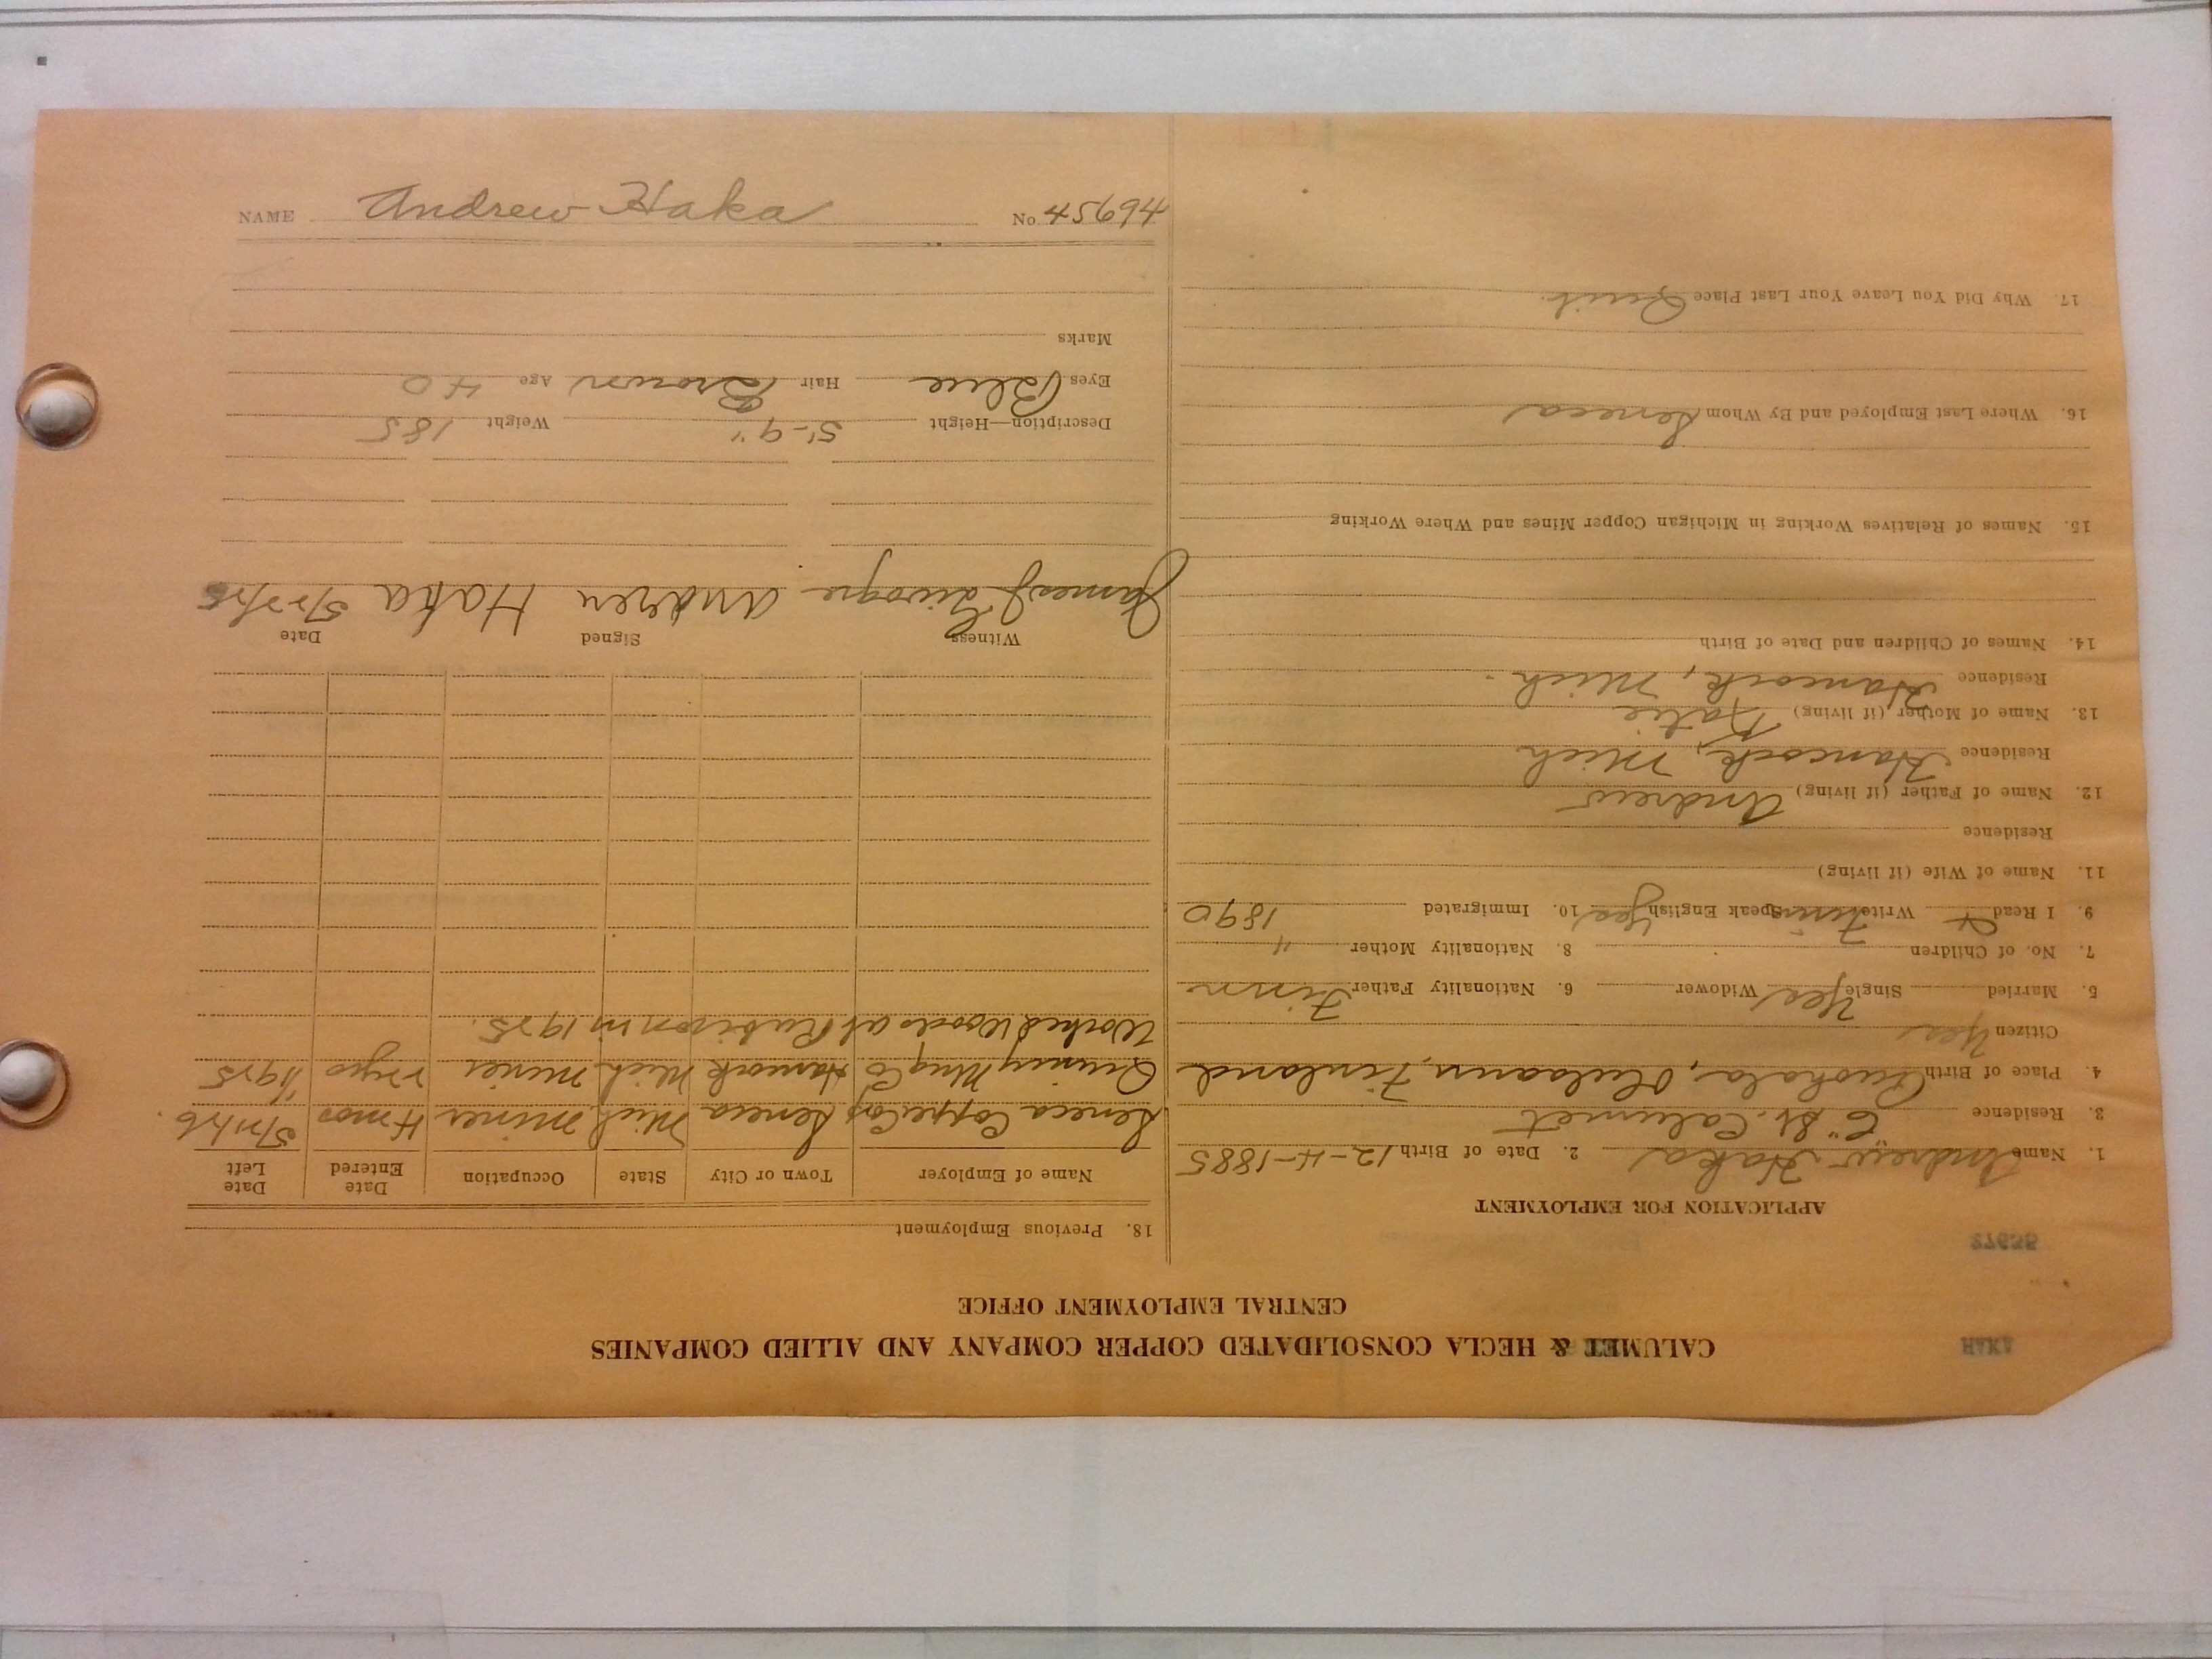 HAKA
CALUMET & HECLA CONSOLIDATED COPPER COMPANY AND ALLIED COMPANIES
CENTRAL EMPLOYMENT OFFICE
APPLICATION FOR EMPLOYMENT
1. Name Andrew Haka 2. Date of Birth 12-4-1885
3. Residence 6" St. Calumet
4. Place of Birth Finland
Citizen Yes
5. Married Single Yes Widower 6. Nationality Father Finn
7. No. of Children 8. Nationality Mother "
9. I Read & Write Finnish Speak English Yes 10. Immigrated 1890
11. Name of Wife (if living)
Residence
12. Name of Father (if living) Andrew
Residence Hancock, Mich
13. Name of Mother (if living) Katie
Residence Hancock, Mich.
14. Names of Children and Date of Birth
15. Names of Relatives Working in Michigan Copper Mines and Where Working
16. Where Last Employed and By Whom Seneca
17. Why Did You Leave Your Last Place Quit.
18. Previous Employment
Name of Employer Town or City State Occupation Date Entered Date Left
Seneca Copper Seneca Mich Miner 4 mos
Quincy Mng Co Hancock Mich. Miner 1925
Worked Woods at in 1925.
Witness Signed Date
James Andrew Haka
Description—Height 5'-9" Weight 185
Eyes Blue Hair Brown Age 40
Marks
NAME Andrew Haka No. 45694